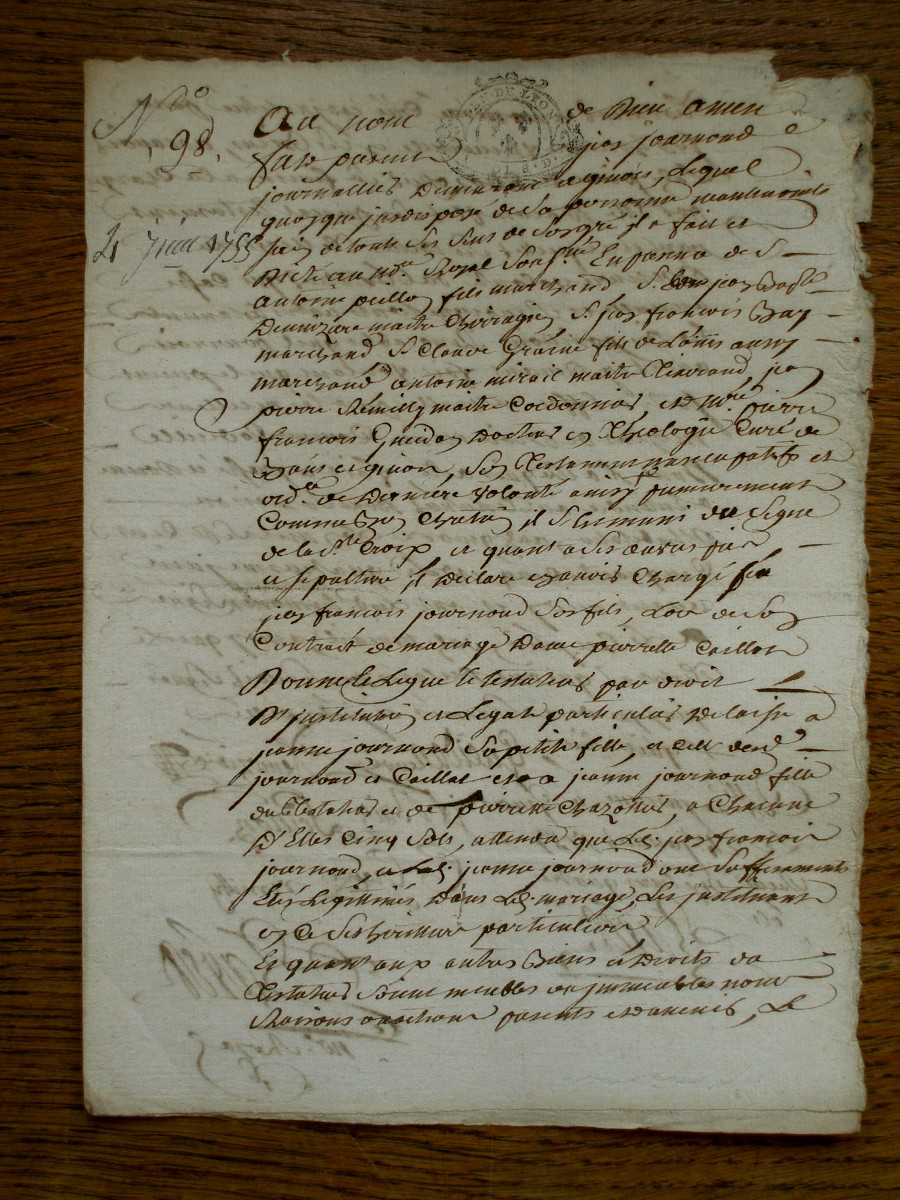 N.o
98.
2 juin 1755
GEN. DE LYON
Au nom de Dieu amen
fut present jean journoud
journallier demeurant a ginois, lequel
quoyque indisposé de sa personne neantmoins
sain de tous ses sens de son gré il a fait et
dicté au no.re Royal sous.né En presence de S.
antoine peillon fils marchand S.
maitre Chirurgien S. jean françois
marchand S. Claude fils de Louis aussy
marchand antoine mirail maitre jean
pierre Remilly maitre Cordonnier, et M.re pierre
françois Gueidan Docteur en Theologie Curé de
, Son Testament nuncupatif et
ord.ce de derniere volonté ainsy premierement
Comme bon Chretien il s'est muni du Signe
de la S.te Croix, et quant a ses œuvres pies
et sepulture il declare en avoir Chargé
jean françois journoud Son fils, Lors de son
Contrat de mariage avec pierrette Caillat
Donne et Legue le testateur par droit
D'institution et Legat particulier delaisse a
jeanne journoud Sa petite fille, et celle desd.
journoud et Caillat et a jeanne journoud fille
du Testateur et de pierrette Chazottier, a Chacune
D'Elles Cinq Sols, attendu que Led. jean françois
journoud, et Lad. jeanne journoud ont Suffisamment
Etés Legitimés, dans Le mariage, Les instituant
en ce Ses heritiers particuliers
Et quant aux autres Biens et Droits du
Testateur Soient meubles ou immeubles noms
Raisons actions presents et advenir, Le